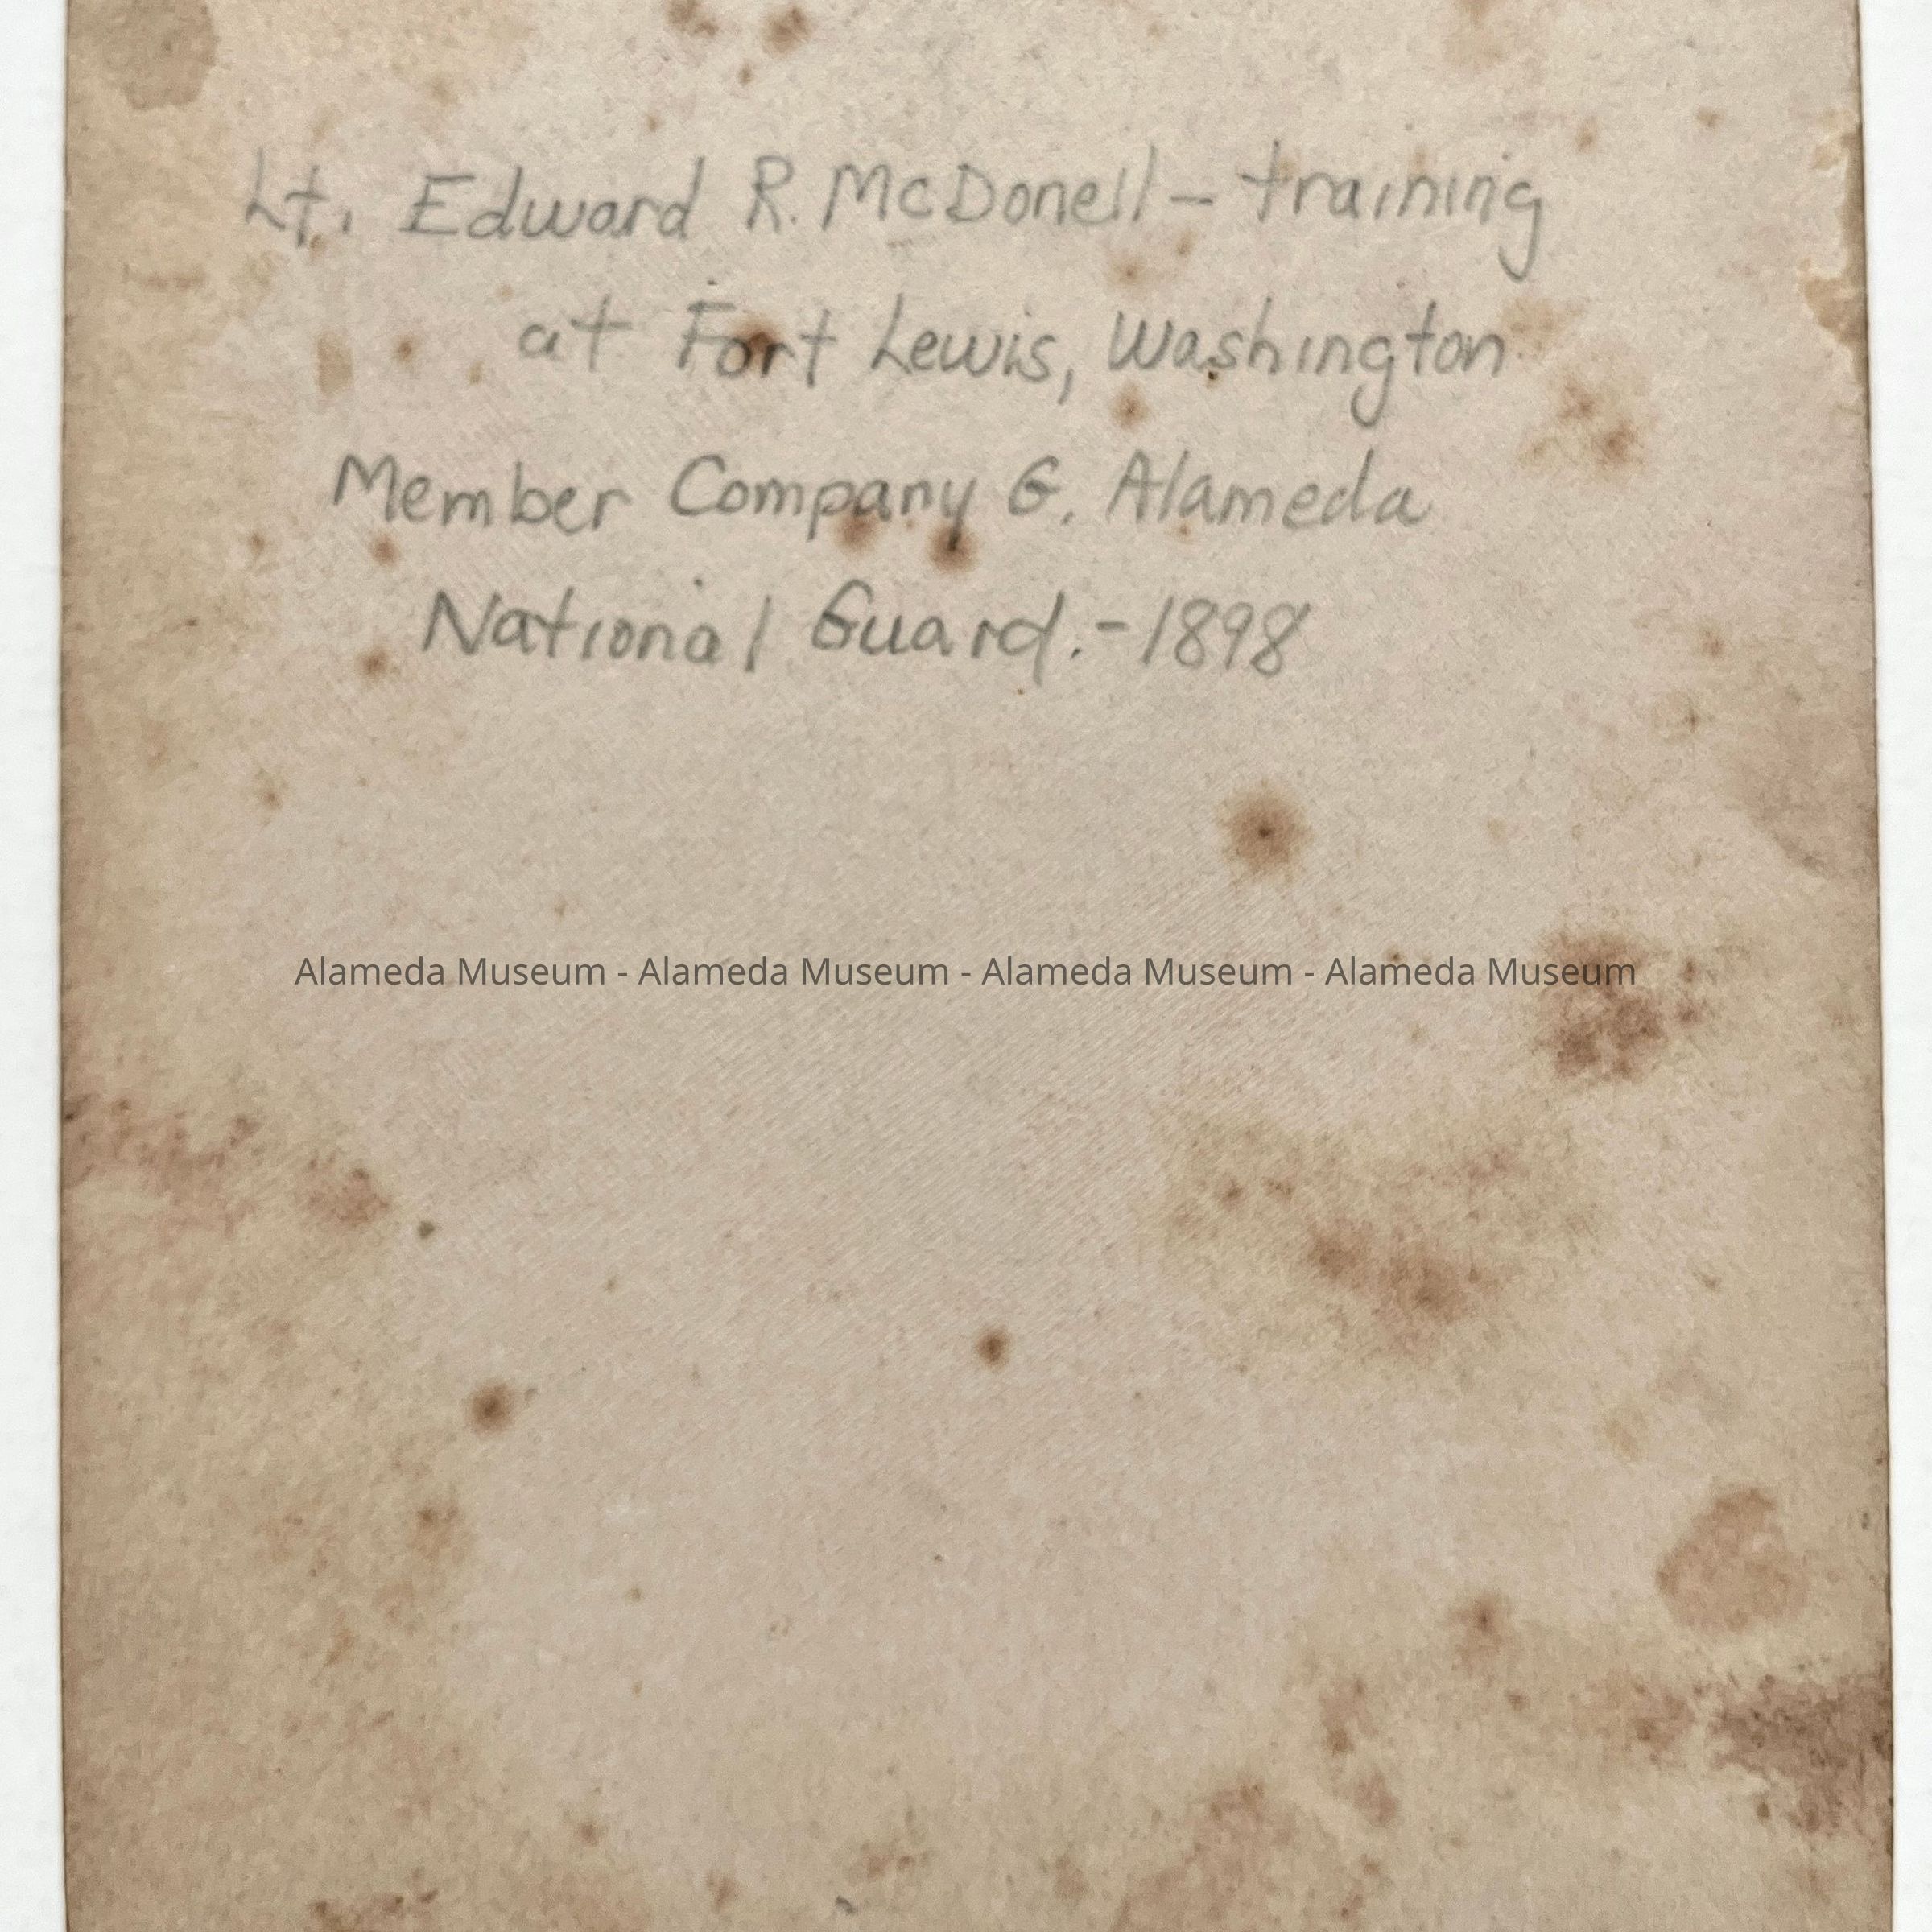 Lt. Edward R. McDonell - training
at Fort Lewis, Washington
Member Company G. Alameda
National Guard. - 1898
Alameda Museum - Alameda Museum - Alameda Museum - Alameda Museum